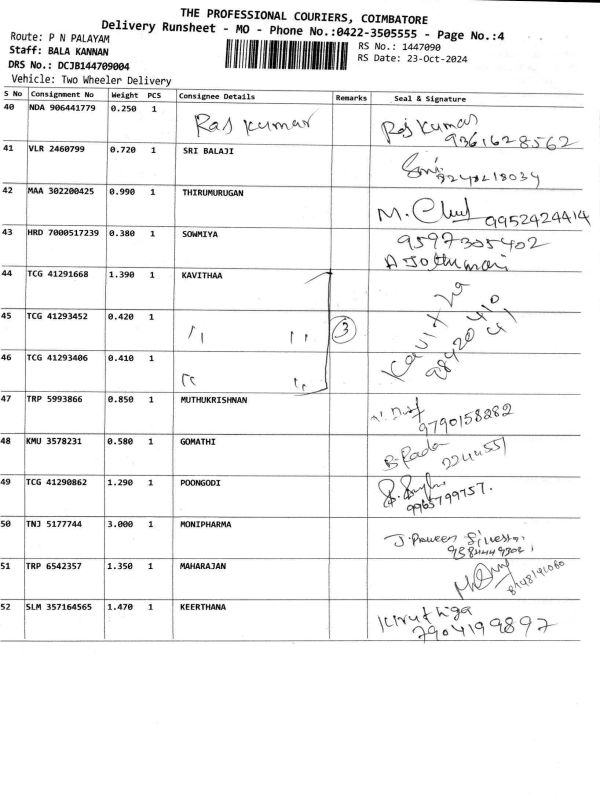 THE PROFESSIONAL COURIERS, COIMBATORE
Delivery Runsheet - MO - Phone No.:0422-3505555 - Page No.:4
Route: P N PALAYAM
RS No.: 1447090
Staff: BALA KANNAN
RS Date: 23-Oct-2024
DRS No.: DCJB144709004
Vehicle: Two Wheeler Delivery
S No Consignment No Weight PCS Consignee Details Remarks Seal & Signature
40 NDA 906441779 0.250 1 Raj Kumar Raj Kumar
9361628562
41 VLR 2460799 0.720 1 SRI BALAJI
42 MAA 302200425 0.990 1 THIRUMURUGAN M. 9952424414
43 HRD 7000517239 0.380 1 SOWMIYA 9597305402
A Jothimani
44 TCG 41291668 1.390 1 KAVITHAA Kavitha
45 TCG 41293452 0.420 1 " " 3 98420 410
41
46 TCG 41293406 0.410 1 " "
47 TRP 5993866 0.850 1 MUTHUKRISHNAN
9790158282
48 KMU 3578231 0.580 1 GOMATHI B. Rada
2244551
49 TCG 41290862 1.290 1 POONGODI
9965799757.
50 TNJ 5177744 3.000 1 MONIPHARMA J. Praveen
51 TRP 6542357 1.350 1 MAHARAJAN
52 SLM 357164565 1.470 1 KEERTHANA Kiruthiga
7904199897